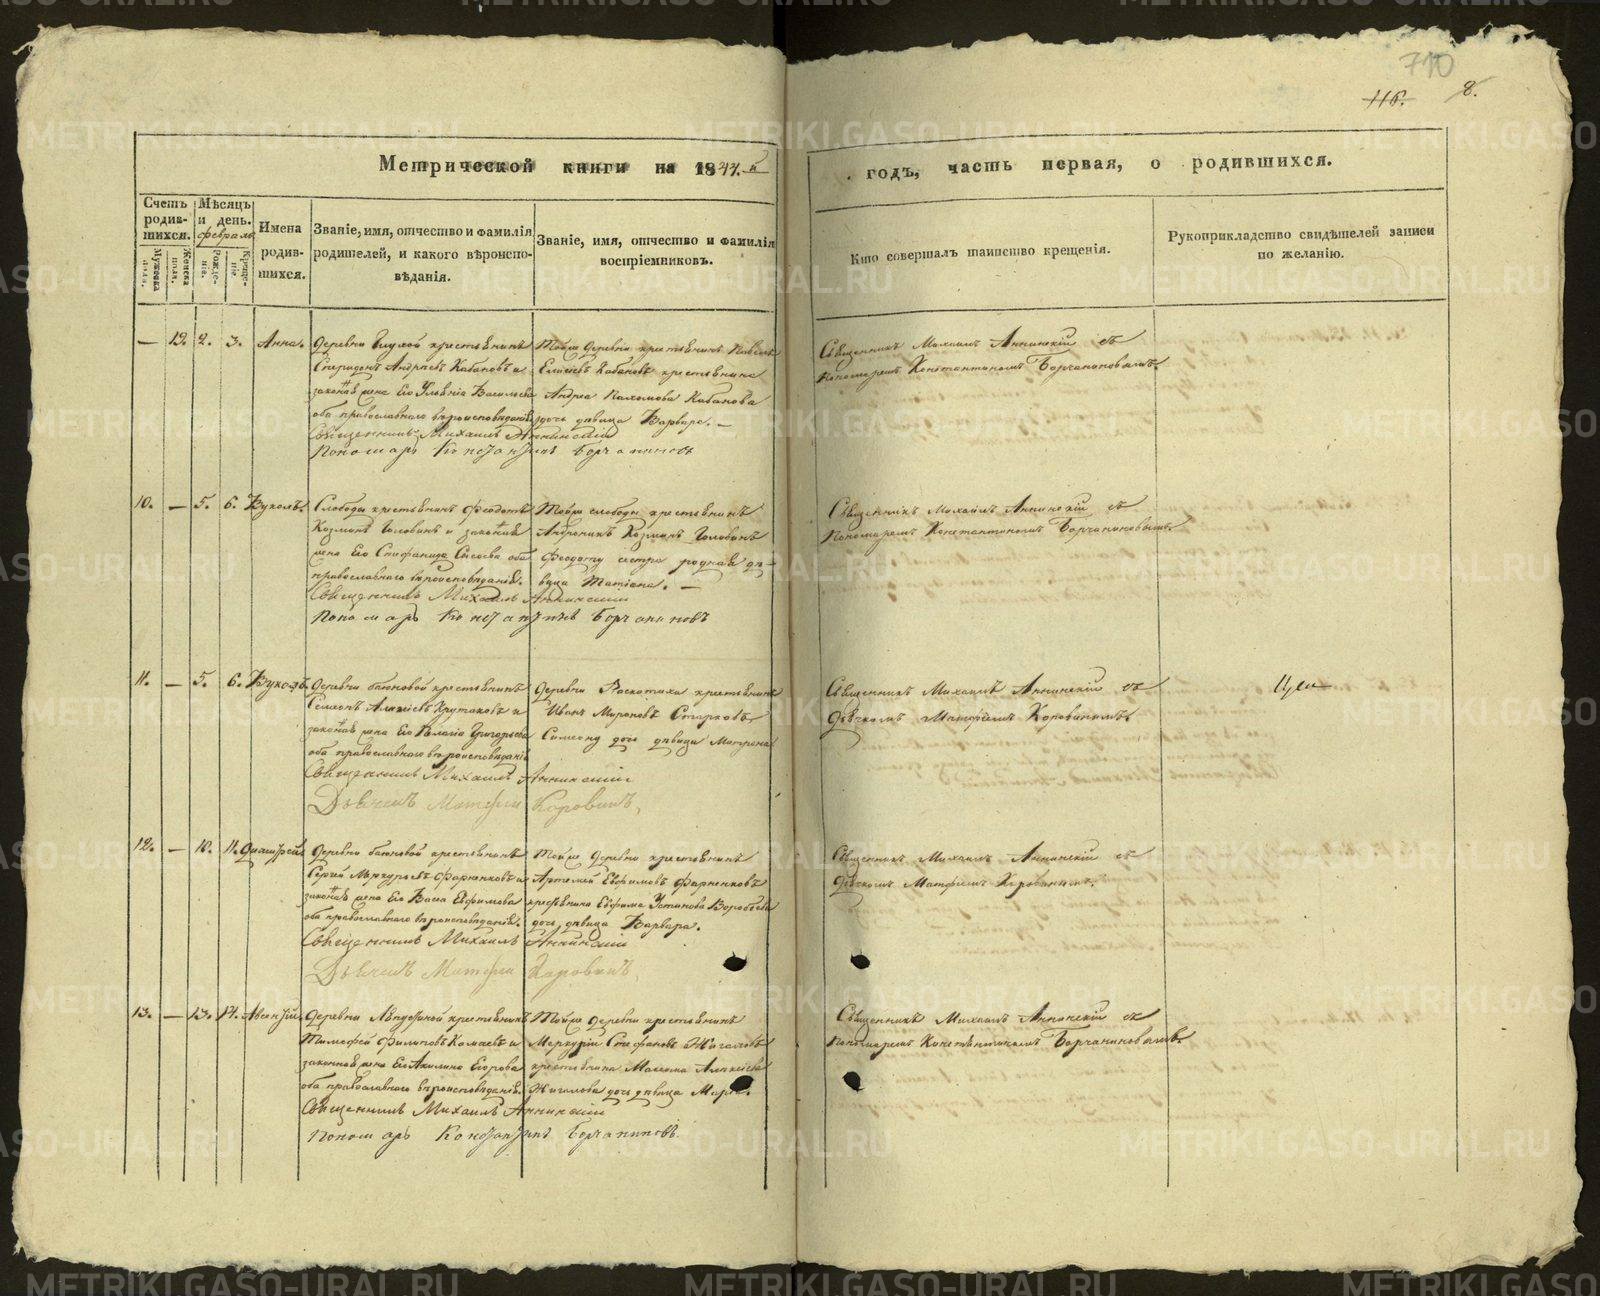 710
116. 8.
Метрической книги на 1844.й годъ, часть первая, о родившихся.
Счетъ родив-шихся.
Мужеска пола.
Женска пола.
Мѣсяцъ и день.
февраль
Рожде-ніе.
Креще-ніе.
Имена родив-шихся.
Званіе, имя, отчество и фамилія родителей, и какого вѣроиспо-вѣданія.
Званіе, имя, отчество и фамилія воспріемниковъ.
Кто совершалъ таинство крещенія.
Рукоприкладство свидѣтелей записи по желанію.
— 12. 2. 3. Анна.
Деревни Глухой крестьянинъ
Спиридонъ Андреевъ Кабановъ и
законная жена Его Ульянія Васильева
оба православнаго вѣроисповѣданія.
Священникъ Михаилъ Аннинскій
Пономарь Константинъ Борчаниновъ
Тойже деревни крестьянинъ Павелъ
Елисеевъ Кабановъ крестьянина
Андрея Пахомова Кабанова
дочь дѣвица Варвара. —
Священникъ Михаилъ Аннинскій съ
Пономаремъ Константиномъ Борчаниновымъ.
10. — 5. 6. Вуколъ.
Слободы крестьянинъ Феодотъ
Козминъ Головинъ и законная
жена Его Стефанида Сысоева оба
православнаго вѣроисповѣданія.
Священникъ Михаилъ Аннинскій
Пономарь Константинъ Борчаниновъ
Тойже слободы крестьянинъ
Андроникъ Козминъ Головинъ
Феодоту сестра родная дѣ-
вица Татіана. —
Священникъ Михаилъ Аннинскій съ
Пономаремъ Константиномъ Борчаниновымъ.
11. — 5. 6. Вуколъ.
Деревни баженовой крестьянинъ
Симеонъ Алексѣевъ и
законная жена Его Пелагія Григорьева
оба православнаго вѣроисповѣданія
Священникъ Михаилъ Аннинскій
Дьячекъ Матфей Коровинъ,
Деревни крестьянинъ
Иванъ Мироновъ Старковъ,
Симеону дочь дѣвица Матрона
Священникъ Михаилъ Аннинскій съ
Дьячкомъ Матфеемъ Коровинымъ.
12. — 10. 11.
Деревни баженовой крестьянинъ
Сергій Меркурьевъ и
законная жена Его Васса Евфимова
оба православнаго вѣроисповѣданія.
Священникъ Михаилъ Аннинскій
Дьячекъ Матфей Коровинъ,
Тойже деревни крестьянинъ
Артемій Евфимовъ
крестьянина Евфима Устинова Воробьева
дочь дѣвица Варвара.
Священникъ Михаилъ Аннинскій съ
Дьячкомъ Матфеемъ Коровинымъ.
13. — 13. 14. Авксентій
Деревни крестьянинъ
Тимофей Филиповъ и
законная жена Его Акилина Егорова
оба православнаго вѣроисповѣданія.
Священникъ Михаилъ Аннинскій
Пономарь Константинъ Борчаниновъ.
Тойже деревни крестьянинъ
Меркурій Стефановъ Жигаловъ
крестьянина Алексѣева
Жигалова дочь дѣвица
Священникъ Михаилъ Аннинскій съ
Пономаремъ Константиномъ Борчаниновымъ.
METRIKI.GASO-URAL.RU